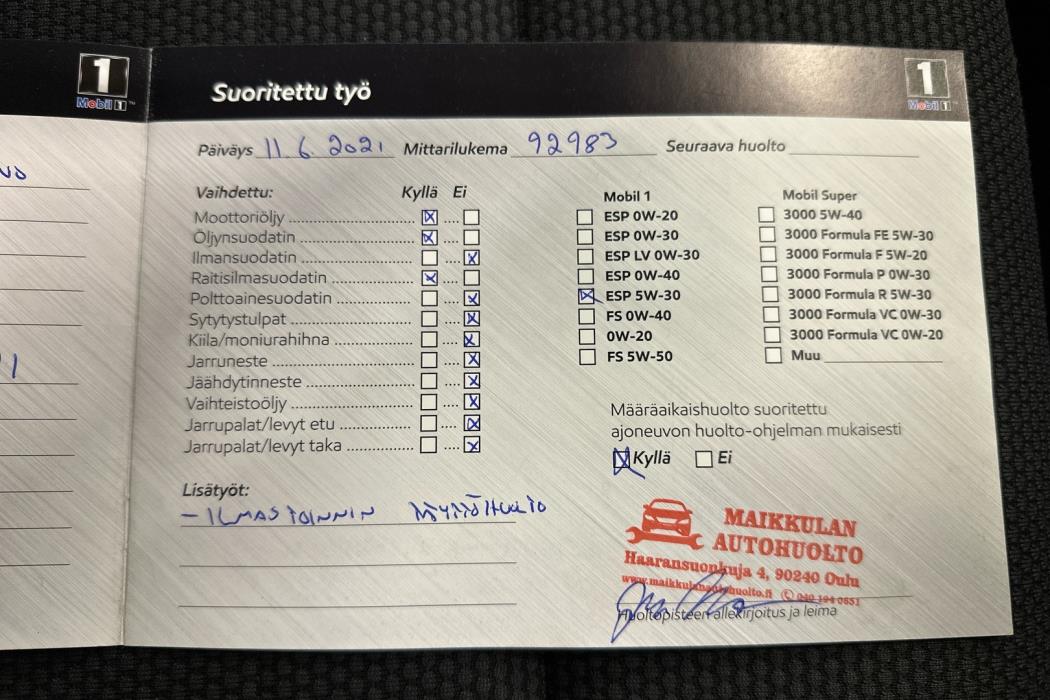 1
Mobil 1
Suoritettu työ
1
Mobil 1
Päiväys 11.6.2021 Mittarilukema 92983 Seuraava huolto
Vaihdettu: Kyllä Ei
Moottoriöljy
Öljynsuodatin
Ilmansuodatin
Raitisilmasuodatin
Polttoainesuodatin
Sytytystulpat
Kiila/moniurahihna
Jarruneste
Jäähdytinneste
Vaihteistoöljy
Jarrupalat/levyt etu
Jarrupalat/levyt taka
Lisätyöt:
- ILMASTOINNIN
Mobil 1
ESP 0W-20
ESP 0W-30
ESP LV 0W-30
ESP 0W-40
ESP 5W-30
FS 0W-40
0W-20
FS 5W-50
Mobil Super
3000 5W-40
3000 Formula FE 5W-30
3000 Formula F 5W-20
3000 Formula P 0W-30
3000 Formula R 5W-30
3000 Formula VC 0W-30
3000 Formula VC 0W-20
Muu
Määräaikaishuolto suoritettu
ajoneuvon huolto-ohjelman mukaisesti
Kyllä Ei
MAIKKULAN
AUTOHUOLTO
Haaransuonkuja 4, 90240 Oulu
www.maikkulanautohuolto.fi 040 194 0651
Huoltopisteen allekirjoitus ja leima